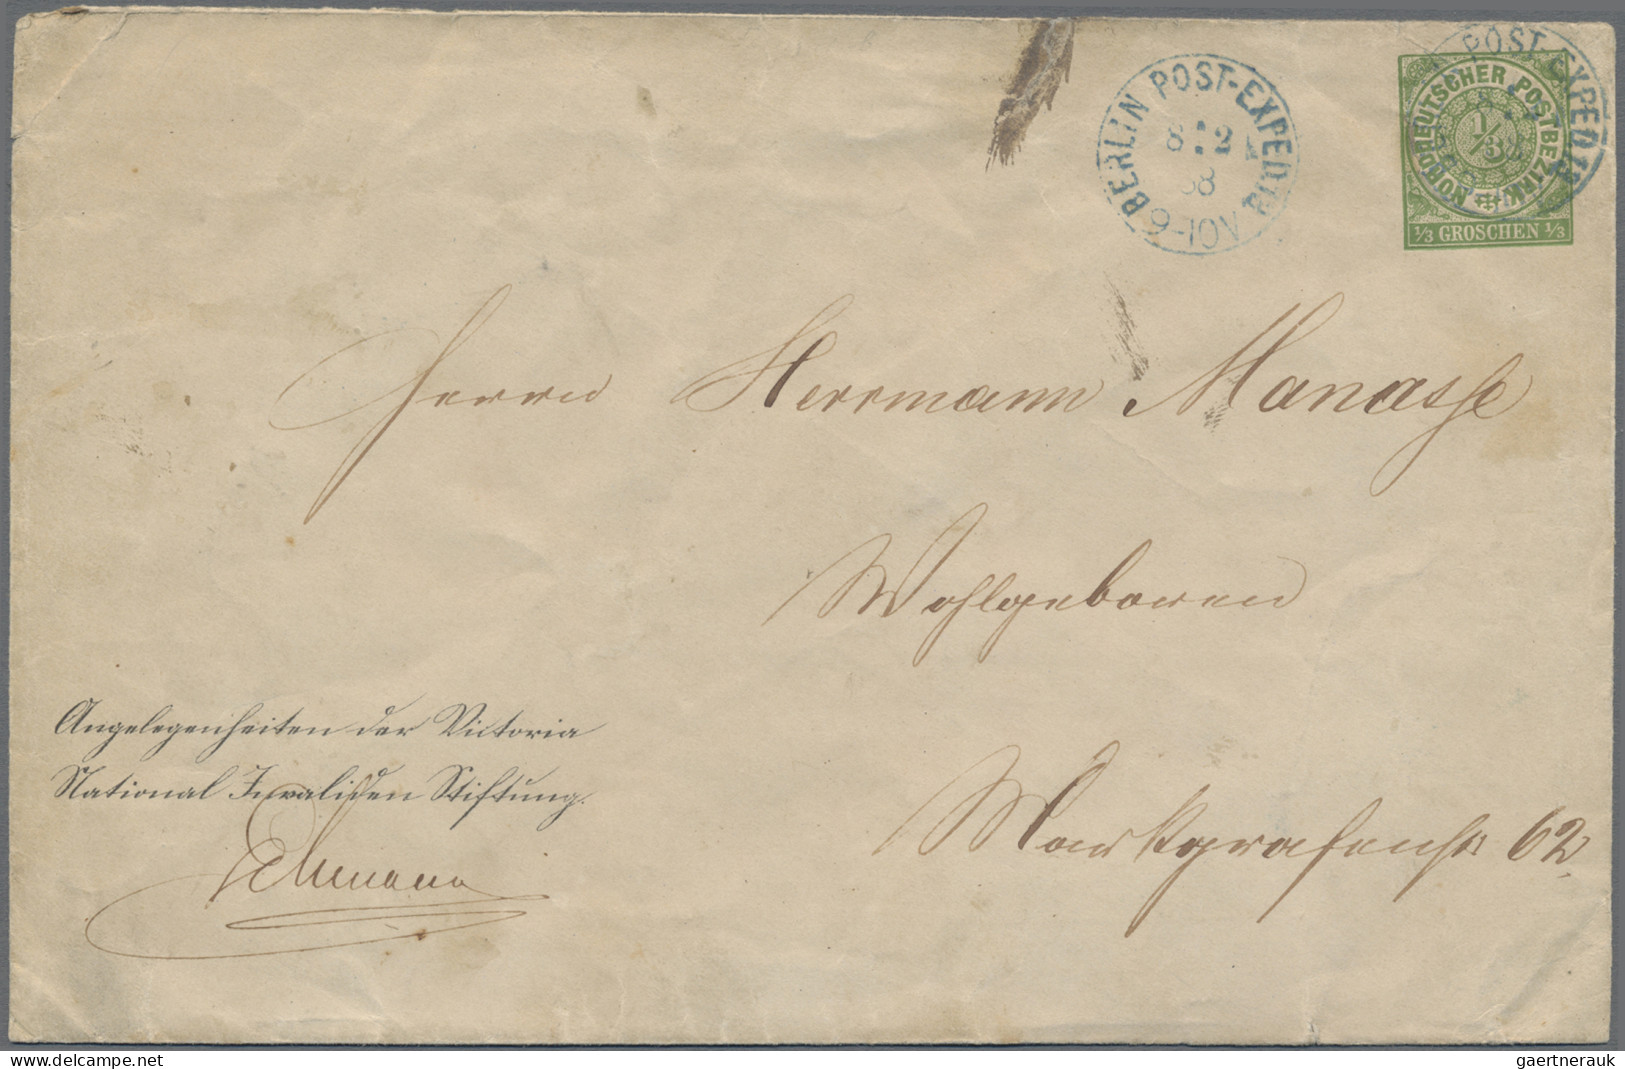 BERLIN POST-EXPED.
8 12
68
9-10V
POST-EXPED
NORDDEUTSCHER POSTBEZIRK
1/3
1/3 GROSCHEN 1/3
Herrn Herrmann Manasse
Wohlgeboren
Angelegenheiten der Victoria
National Invaliden Stiftung.
Markgrafenstr 62
delcampe.net
gaertnerauk